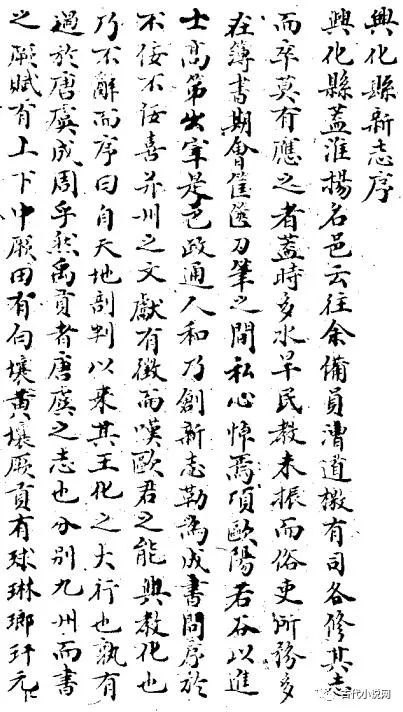 興化縣新志序
興化縣蓋淮揚名邑云往余備員漕道檄有司各修其志
而卒莫有應之者蓋時多水旱民教未振而俗吏所務多
在簿書期會筐篋刀筆之間私心悼焉頃歐陽君若谷以進
士高第出宰是邑政通人和乃創新志勒為成書問序於
不佞不佞喜茲州之文獻有徵而嘆歐君之能興教化也
乃不辭而序曰自天地剖判以來其王化之大行也孰有
過於唐虞成周乎然禹貢者唐虞之志也分別九州而書
之厥賦有上下中厥田有白壤黃壤厥貢有球琳瑯玕元
古代小说网